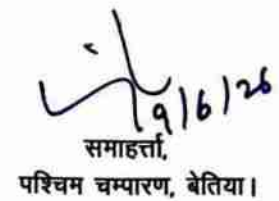 9/6/26
समाहर्त्ता,
पश्चिम चम्पारण, बेतिया।